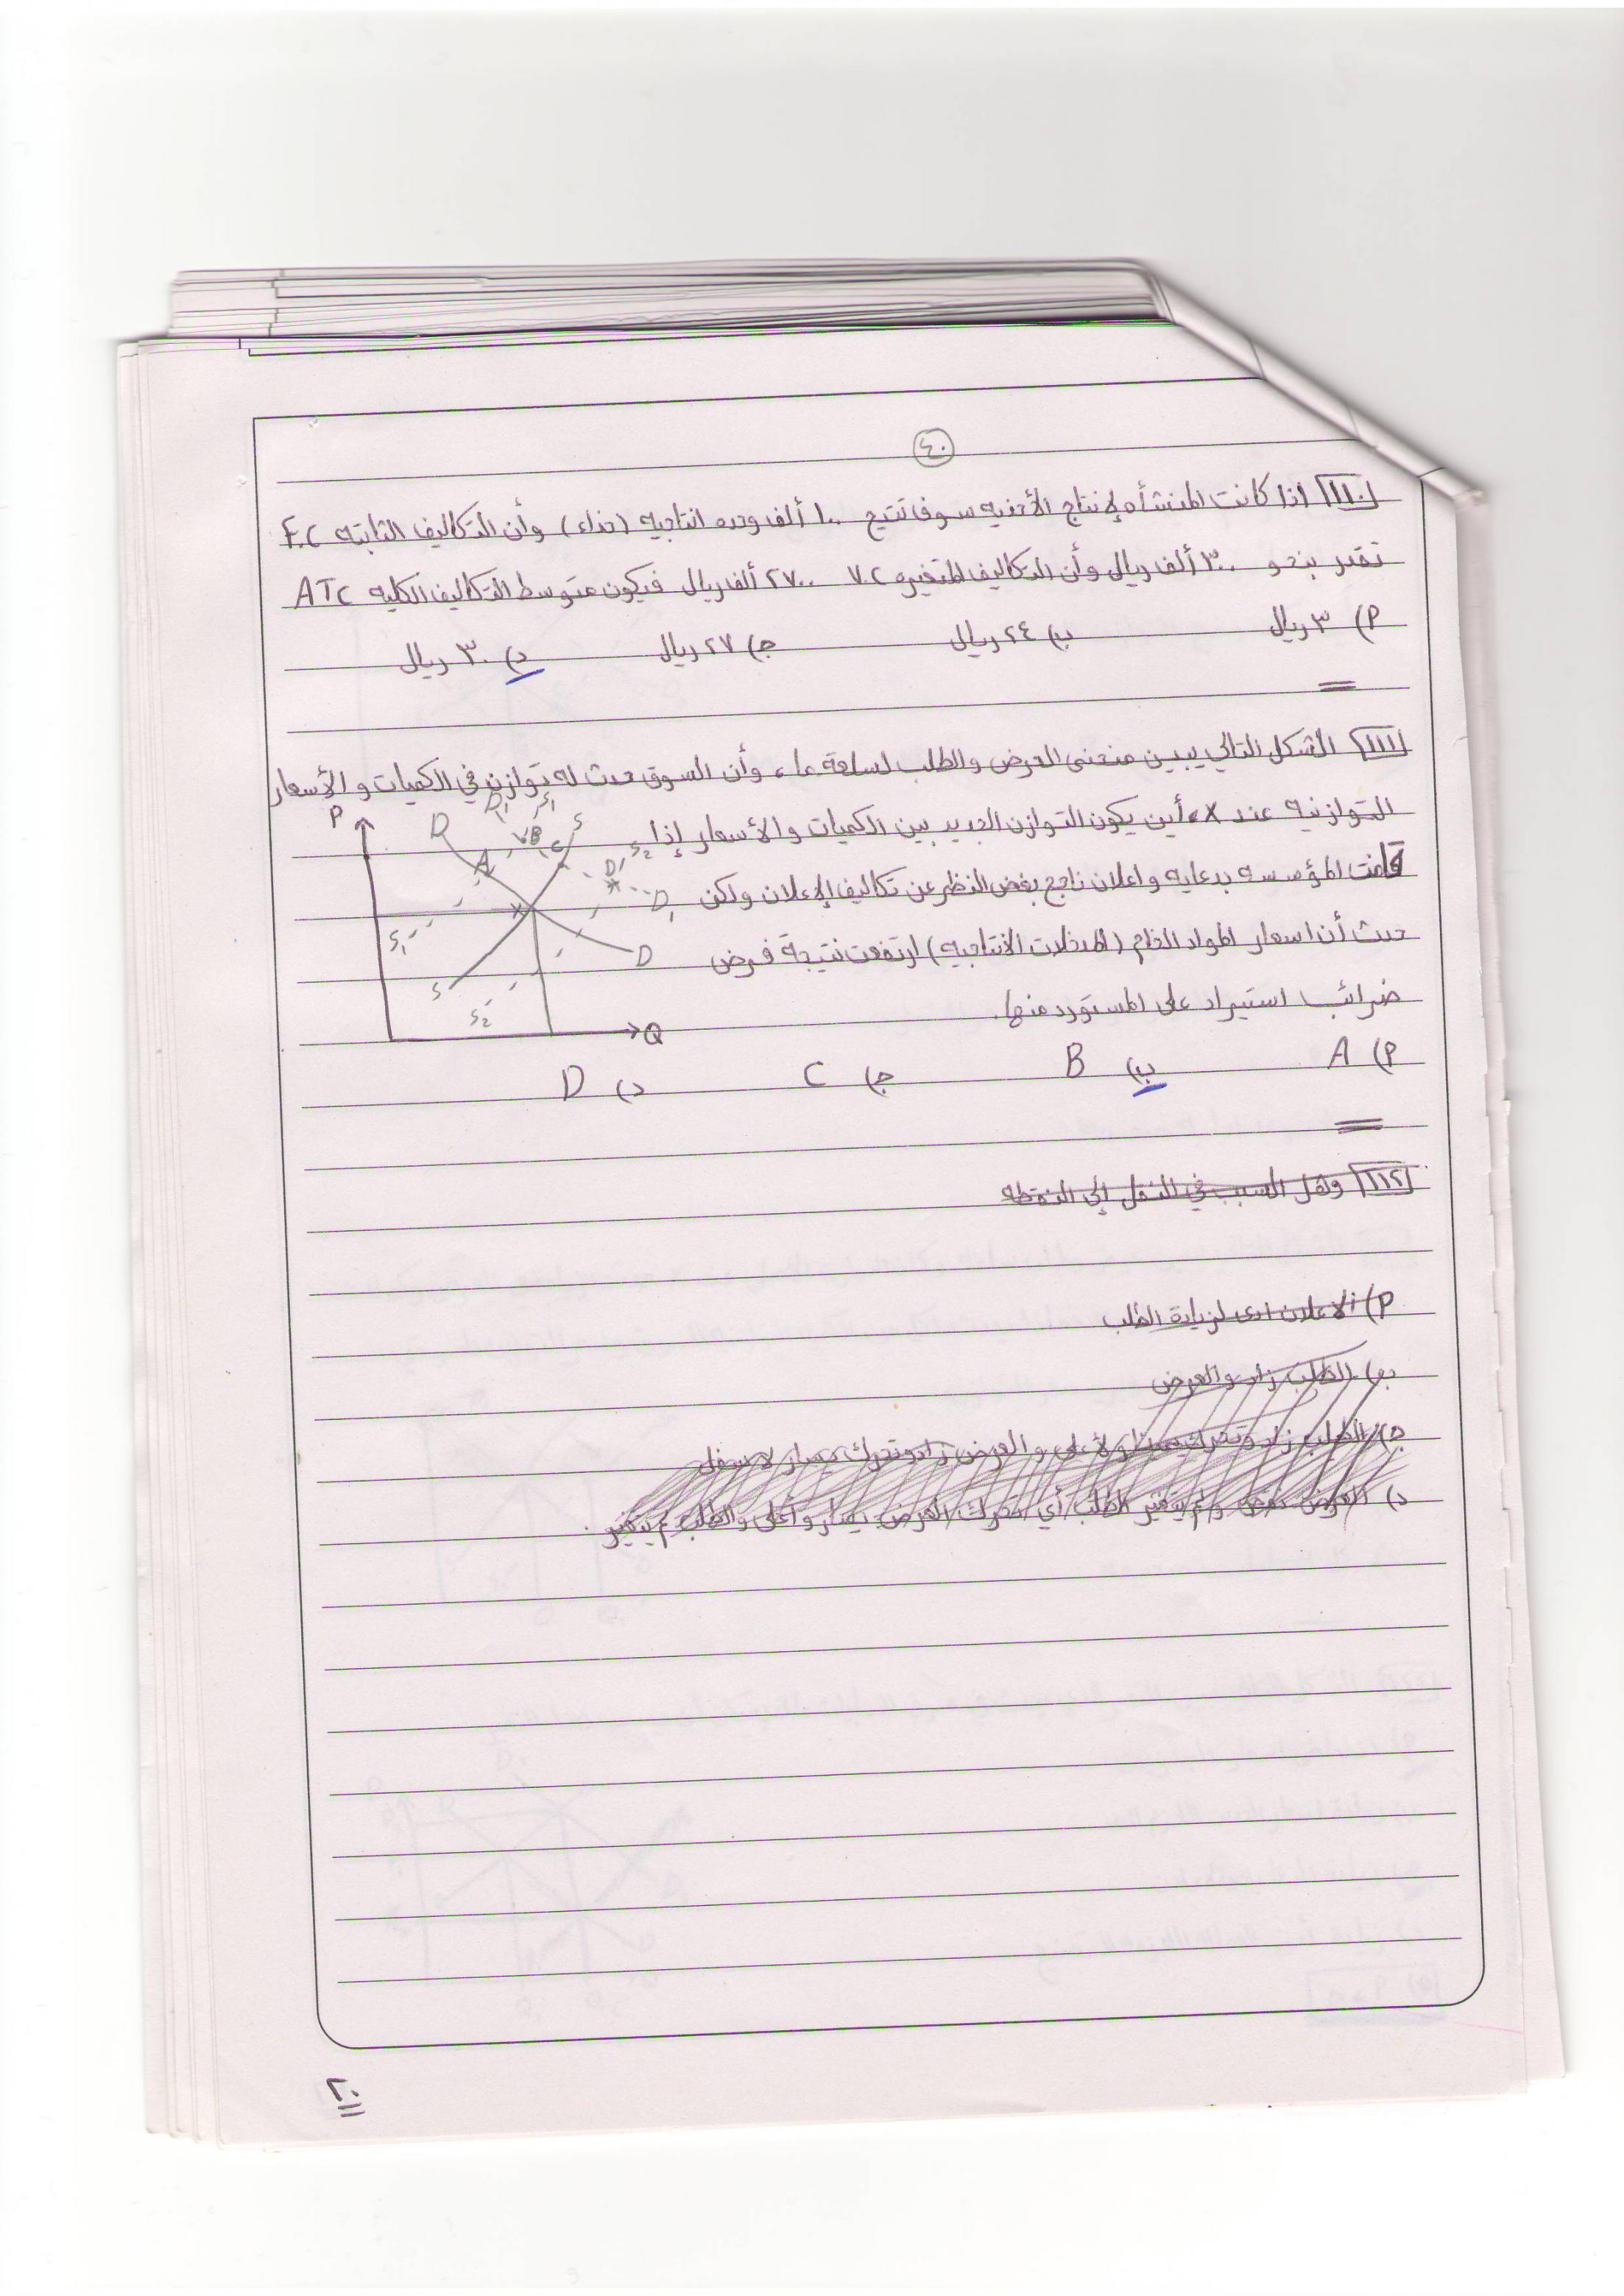 ٤٠
١١٠ اذا كانت المنشأه لإنتاج الأحذيه سوف تنتج ١٠٠ ألف وحده انتاجيه (حذاء) وأن التكاليف الثابته F.C
تقدر بنحو ٣٠٠ ألف ريال وأن التكاليف المتغيره V.C ٢٧٠٠ ألف ريال فيكون متوسط التكاليف الكليه ATC
أ) ٣ ريال ب) ٢٤ ريال ج) ٢٧ ريال د) ٣٠ ريال
١١١ الشكل التالي يبين منحنى العرض والطلب لسلعة ما، وأن السوق حدث له توازن في الكميات والأسعار
التوازنيه عند X، أين يكون التوازن الجديد بين الكميات والأسعار إذا
قامت المؤسسه بدعايه واعلان ناجح بغض النظر عن تكاليف الإعلان ولكن
حدث أن اسعار المواد الخام (المدخلات الانتاجيه) ارتفعت نتيجة فرض
ضرائب استيراد على المستورد منها.
P D D₁ S₁ S
A B C D₁ S₂
X D₁
S₁ D
S S₂ Q
أ) A ب) B ج) C د) D
١١٢ ولعل السبب في النقل إلى النقطه
أ) الاعلان ادى لزيادة الطلب
ب) الطلب زاد والعرض
ج) الطلب زاد وتحرك لأعلى والعرض زاد وتحرك يسار لاسفل
د) العرض نقص ولم يتغير الطلب أي تحرك العرض يسار وأعلى والطلب لم يتغير.
٢٠